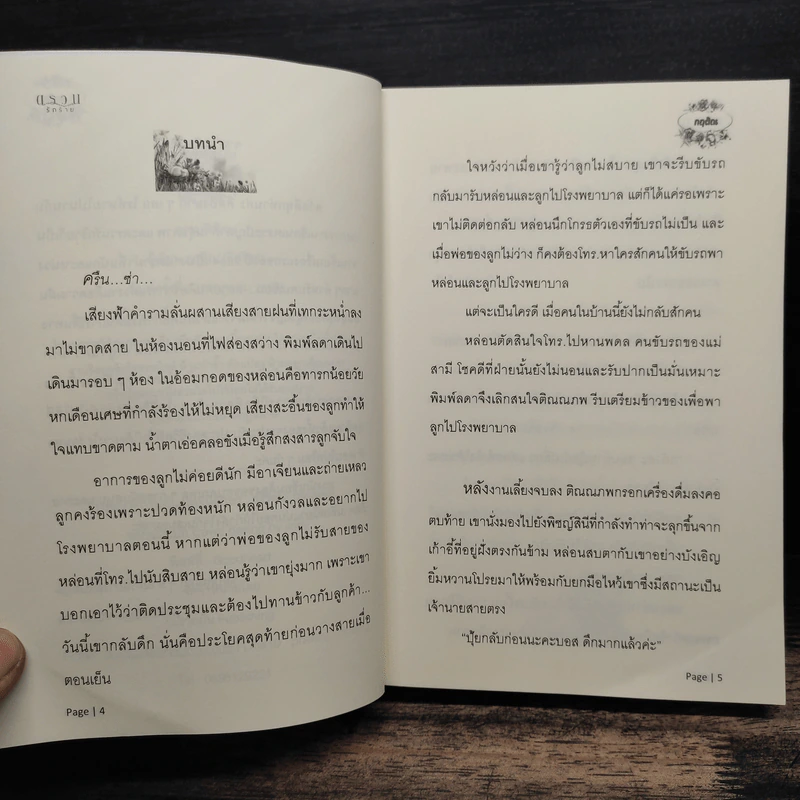 ตรวน
รักร้าย
บทนำ
ครืน...ซ่า...
เสียงฟ้าคำรามลั่นผสานเสียงสายฝนที่เทกระหน่ำลง
มาไม่ขาดสาย ในห้องนอนที่ไฟส่องสว่าง พิมพ์ลดาเดินไป
เดินมารอบ ๆ ห้อง ในอ้อมกอดของหล่อนคือทารกน้อยวัย
หกเดือนเศษที่กำลังร้องไห้ไม่หยุด เสียงสะอื้นของลูกทำให้
ใจแทบขาดตาม น้ำตาเอ่อคลอขังเมื่อรู้สึกสงสารลูกจับใจ
อาการของลูกไม่ค่อยดีนัก มีอาเจียนและถ่ายเหลว
ลูกคงร้องเพราะปวดท้องหนัก หล่อนกังวลและอยากไป
โรงพยาบาลตอนนี้ หากแต่ว่าพ่อของลูกไม่รับสายของ
หล่อนที่โทร.ไปนับสิบสาย หล่อนรู้ว่าเขายุ่งมาก เพราะเขา
บอกเอาไว้ว่าติดประชุมและต้องไปทานข้าวกับลูกค้า...
วันนี้เขากลับดึก นั่นคือประโยคสุดท้ายก่อนวางสายเมื่อ
ตอนเย็น
Page | 4
กฤติณ
ใจหวังว่าเมื่อเขารู้ว่าลูกไม่สบาย เขาจะรีบขับรถ
กลับมารับหล่อนและลูกไปโรงพยาบาล แต่ก็ได้แค่รอเพราะ
เขาไม่ติดต่อกลับ หล่อนนึกโกรธตัวเองที่ขับรถไม่เป็น และ
เมื่อพ่อของลูกไม่ว่าง ก็คงต้องโทร.หาใครสักคนให้ขับรถพา
หล่อนและลูกไปโรงพยาบาล
แต่จะเป็นใครดี เมื่อคนในบ้านนี้ยังไม่กลับสักคน
หล่อนตัดสินใจโทร.ไปหานพดล คนขับรถของแม่
สามี โชคดีที่ฝ่ายนั้นยังไม่นอนและรับปากเป็นมั่นเหมาะ
พิมพ์ลดาจึงเลิกสนใจติณณภพ รีบเตรียมข้าวของเพื่อพา
ลูกไปโรงพยาบาล
หลังงานเลี้ยงจบลง ติณณภพกรอกเครื่องดื่มลงคอ
ตบท้าย เขานั่งมองไปยังพิชญ์สินีที่กำลังทำท่าจะลุกขึ้นจาก
เก้าอี้ที่อยู่ฝั่งตรงกันข้าม หล่อนสบตากับเขาอย่างบังเอิญ
ยิ้มหวานโปรยมาให้พร้อมกับยกมือไหว้เขาซึ่งมีสถานะเป็น
เจ้านายสายตรง
“ปุ้ยกลับก่อนนะคะบอส ดึกมากแล้วค่ะ”
Page | 5